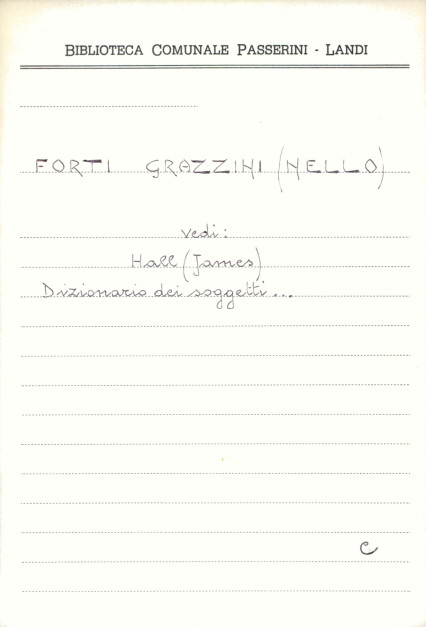 BIBLIOTECA COMUNALE PASSERINI - LANDI
FORTI GRAZZINI (NELLO)
vedi:
Hall (James)
Dizionario dei soggetti...
C